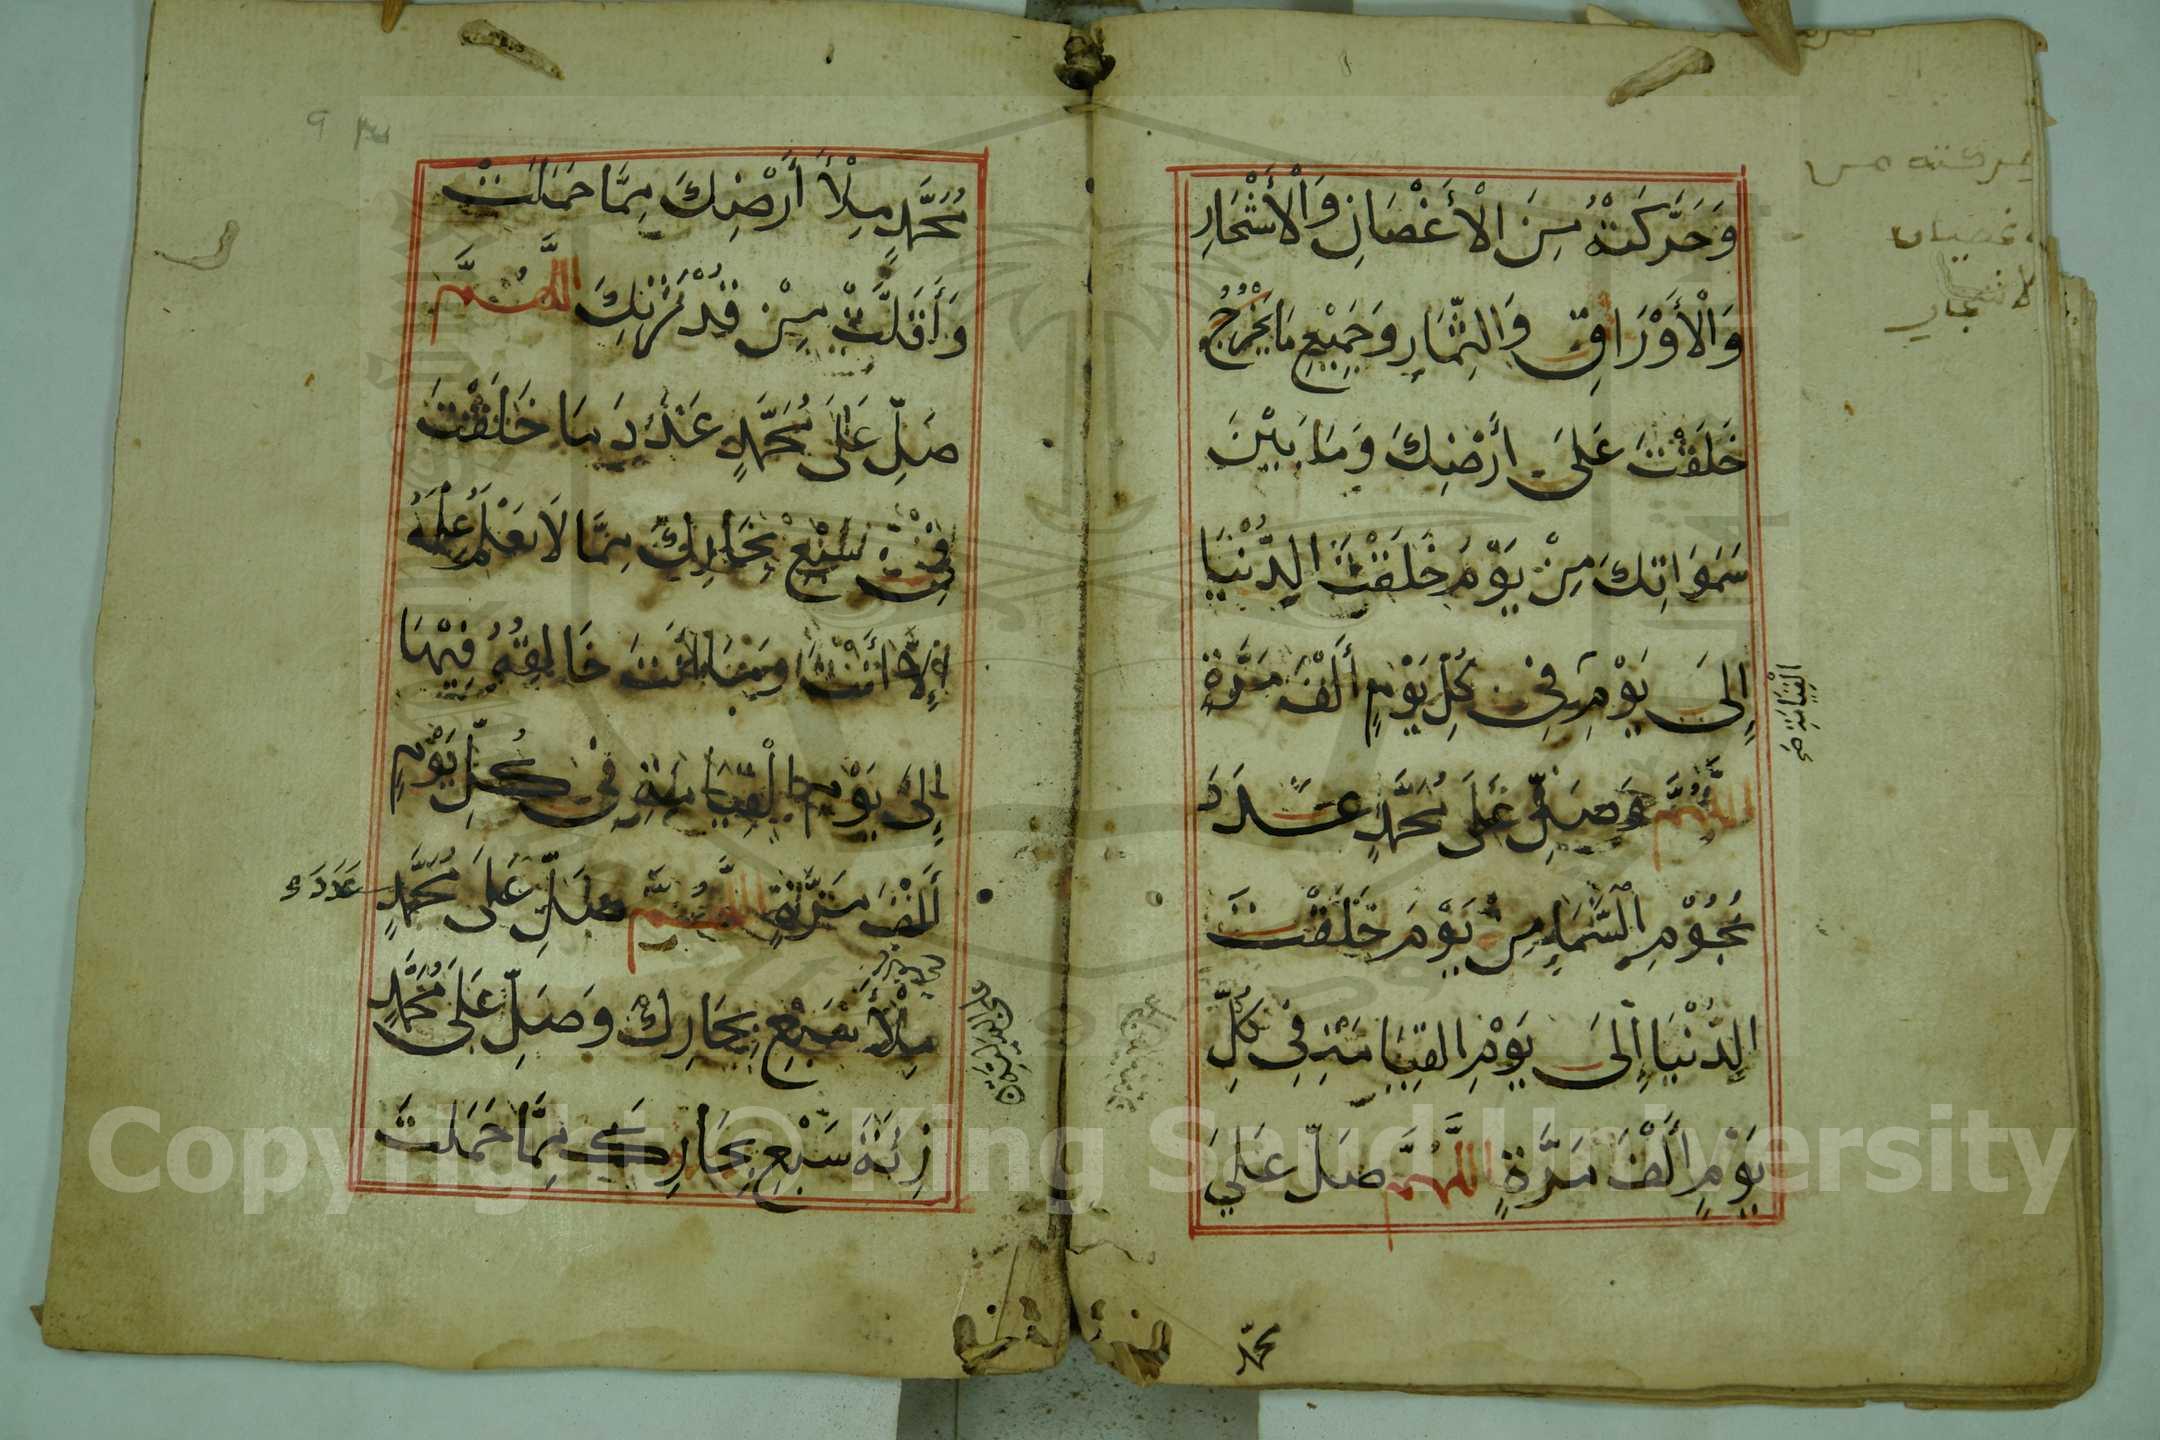 وَحَرَّكَتْهُ مِنَ الْأَغْصَانِ وَالْأَشْجَارِ
وَالْأَوْرَاقِ وَالثِّمَارِ وَجَمِيْعِ مَا يَخْرُجُ
خَلَقْتَ عَلَى أَرْضِكَ وَمَا بَيْنَ
سَمَوَاتِكَ مِنْ يَوْمَ خَلَقْتَ الدُّنْيَا
إِلَى يَوْمِ فِي كُلِّ يَوْمٍ أَلْفَ مَرَّةٍ
الْقِيَامَةِ صح
اللَّهُمَّ وَصَلِّ عَلَى مُحَمَّدٍ عَدَدَ
نُجُوْمِ السَّمَاءِ مِنْ يَوْمَ خَلَقْتَ
الدُّنْيَا إِلَى يَوْمِ الْقِيَامَةِ فِي كُلِّ
يَوْمٍ أَلْفَ مَرَّةٍ اللَّهُمَّ صَلِّ عَلَى
محمد
مُحَمَّدٍ مِلْأَ أَرْضِكَ مِمَّا حَمَلَتْ
وَأَقَلَّتْ مِنْ قُدْرَتِكَ اللَّهُمَّ
صَلِّ عَلَى مُحَمَّدٍ عَدَدَ مَا خَلَقْتَ
فِي سَبْعِ بِحَارِكَ مِمَّا لَا يَعْلَمُ عِلْمَهُ
إِلَّا أَنْتَ وَمَا أَنْتَ خَالِقُهُ فِيْهَا
إِلَى يَوْمِ الْقِيَامَةِ فِي كُلِّ يَوْمٍ
أَلْفَ مَرَّةٍ اللَّهُمَّ صَلِّ عَلَى مُحَمَّدٍ عَدَدَ
مِلْأَ سَبْعِ بِحَارِكَ وَصَلِّ عَلَى مُحَمَّدٍ
زِنَةَ سَبْعِ بِحَارِكَ مِمَّا حَمَلَتْ
Copyright © King Saud University